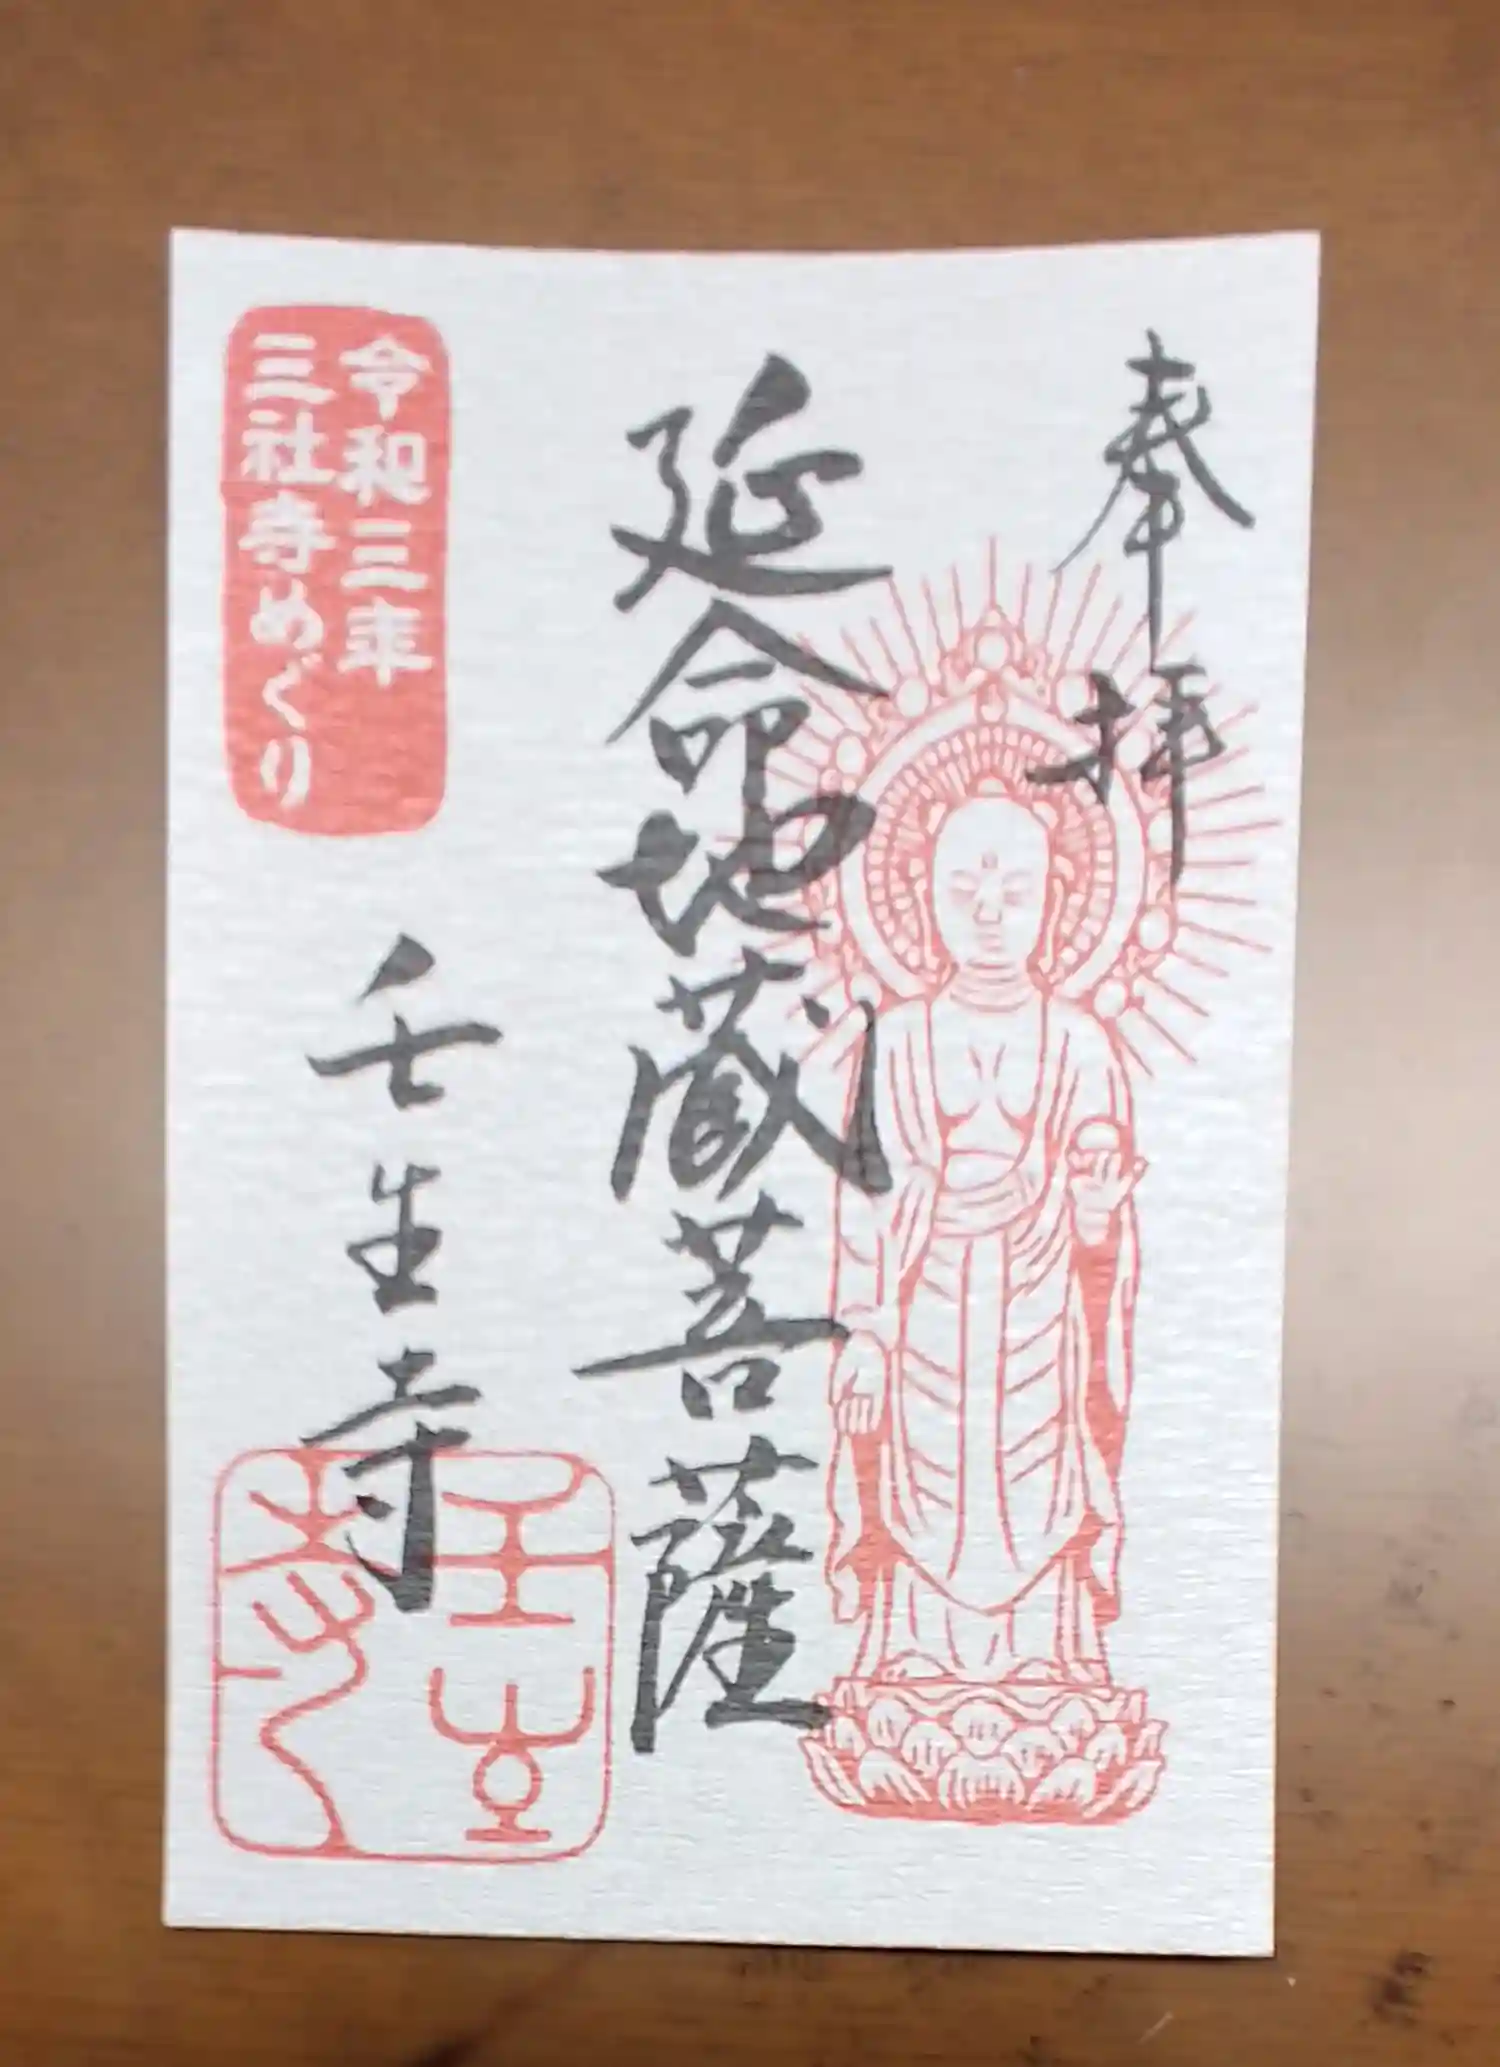 奉拝
延命地蔵菩薩
壬生寺
令和三年
三社寺めぐり
壬生
寺印